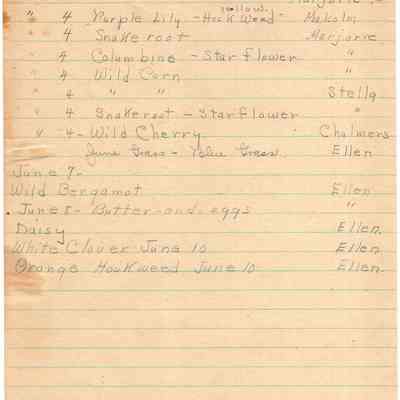 Marjorie
yellow
" 4 Purple Lily - Hawkweed - Malcolm
" 4 Snakeroot Marjorie
" 4 Columbine - Starflower "
" 4 Wild Corn "
" 4 " " Stella
" 4 Snakeroot - Starflower "
" 4 - Wild Cherry Chalmers
June Grass - Blue Grass Ellen
June 7 -
Wild Bergamot Ellen
June 8 - Butter-and-eggs "
Daisy Ellen
White Clover June 10 Ellen
Orange Hawkweed June 10 Ellen